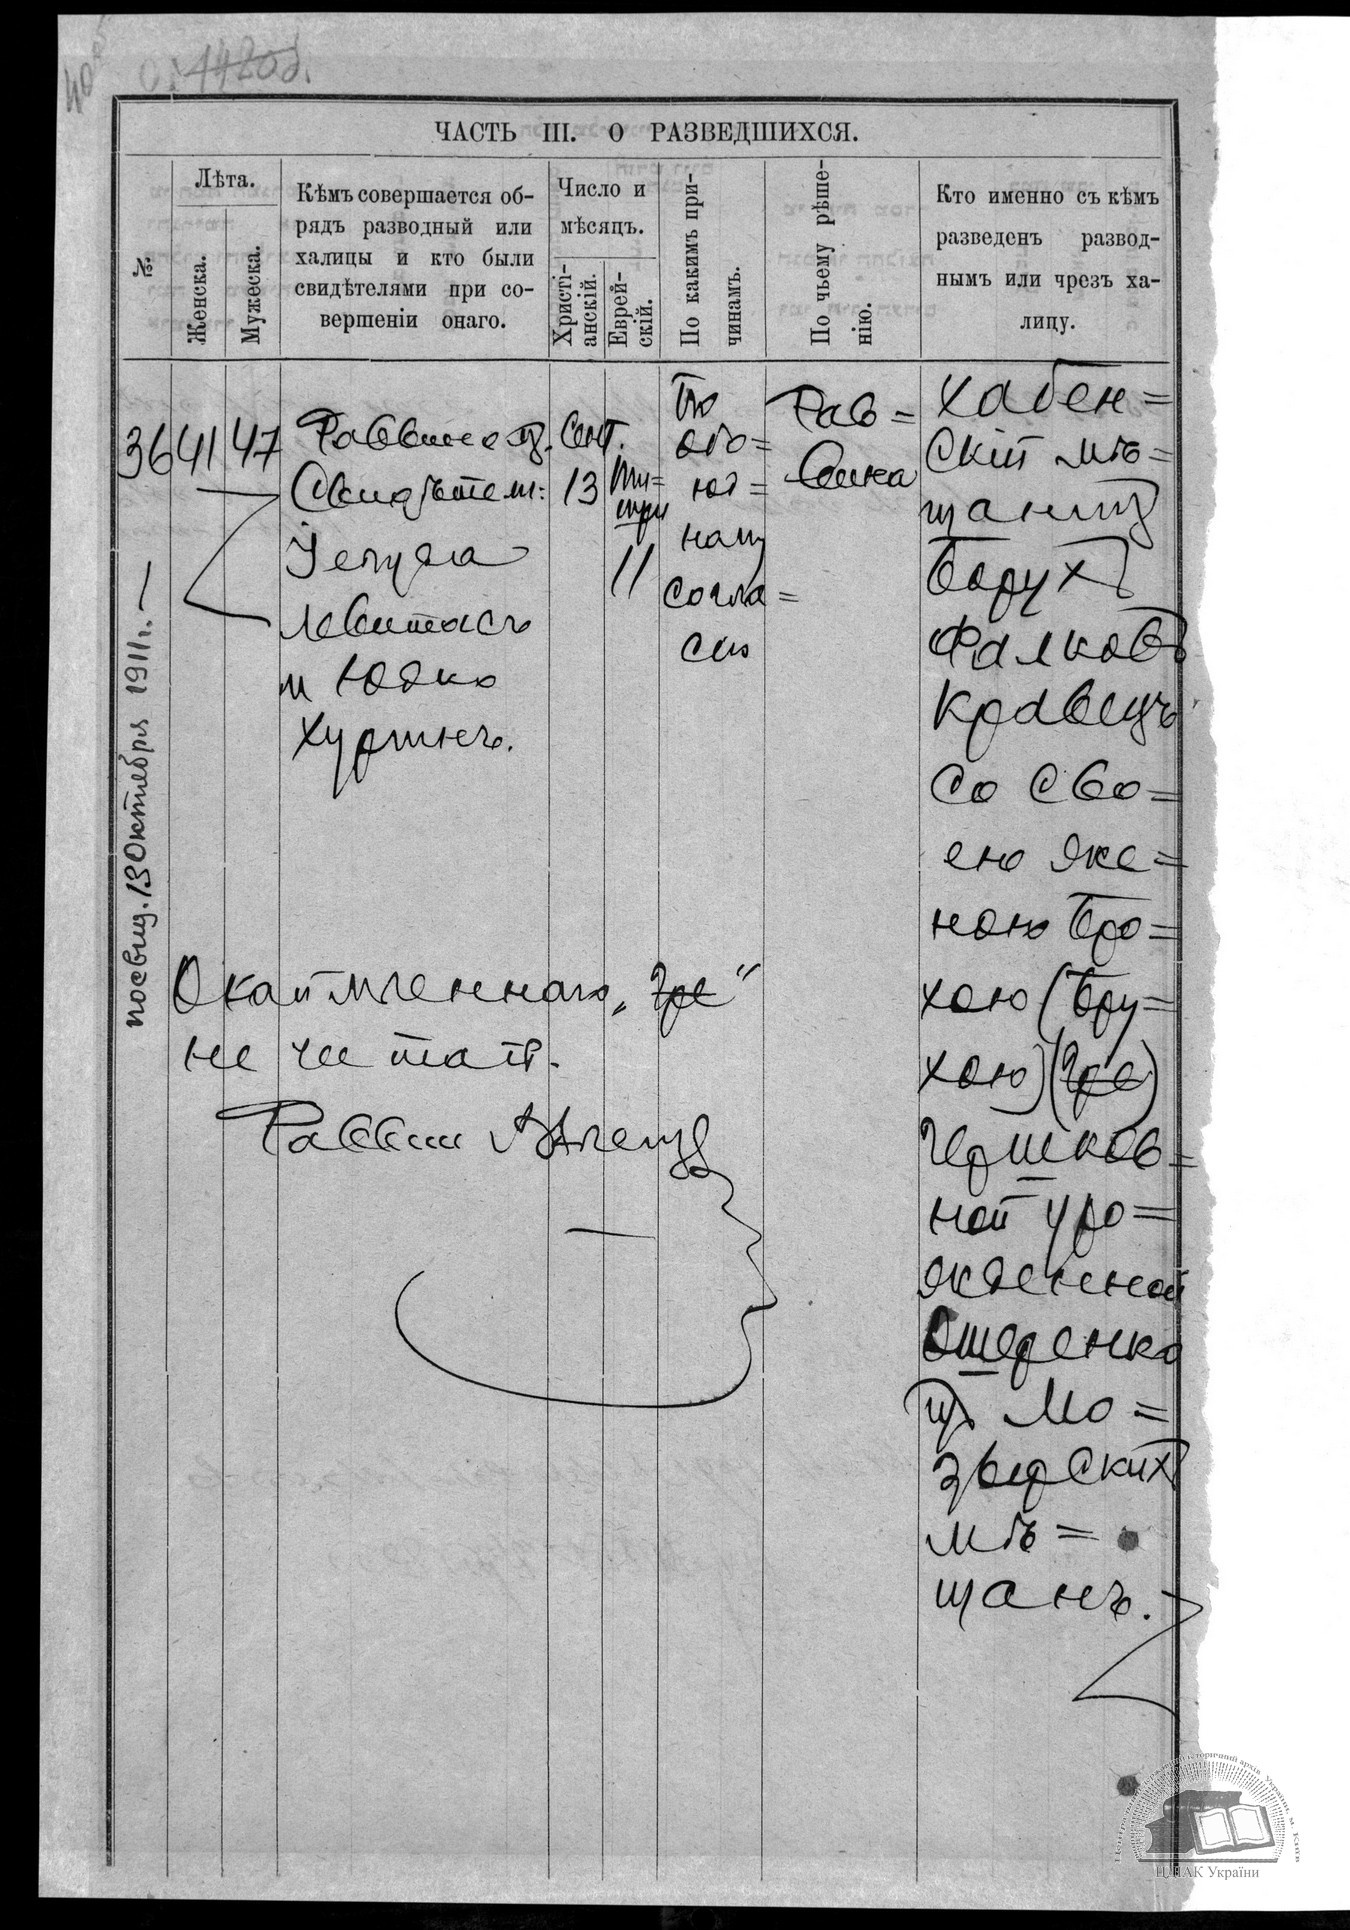 ЧАСТЬ III. О РАЗВЕДШИХСЯ.
№
Лѣта.
Женска.
Мужеска.
Кѣмъ совершается об-
рядъ разводный или
халицы и кто были
свидѣтелями при со-
вершеніи онаго.
Число и
мѣсяцъ.
Христі-
анскій.
Еврей-
скій.
По какимъ при-
чинамъ.
По чьему рѣше-
нію.
Кто именно съ кѣмъ
разведенъ развод-
нымъ или чрезъ ха-
лицу.
36
41
47
Раввиномъ.
Свидѣтели:
Левитасъ
и Юдко
Сент.
13
Ти=
шри
11
По
обо=
юд=
ному
согла=
сію
Рав=
вина
Хабен=
скій мѣ=
щанинъ
Борухъ
Фалковъ
Кравецъ
со сво=
ею же=
ною Бро=
хою (Бру=
хою) (Гре)
Гершков=
ной уро=
жденной
Ошеренко
изъ Мо=
зырскихъ
мѣ=
щанъ.
посвид. 13 Октября 1911 г.
Окаймленнаго „Гре"
не читать.
Раввин
Центральний державний історичний архів України, м. Київ
ЦДІАК України